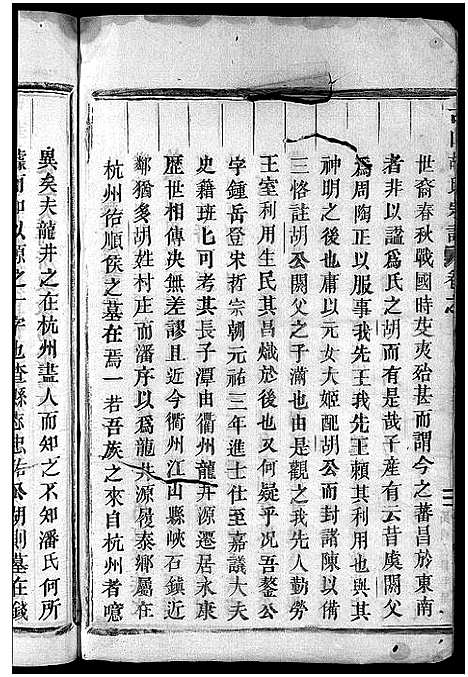 世裔春秋戰國時芟夷殆甚而謂今之蕃昌於東南
者非以諡爲氏之胡而有是哉子產有云昔虞閼父
爲周陶正以服事我先王我先王賴其利用也與其
神明之後也庸以元女大姬配胡公而封諸陳以備
三恪註胡公閼父之子滿也由是觀之我先人勤勞
王室利用生民其昌熾於後世又何疑乎況吾鏊公
字鍾岳登宋哲宗朝元祐三年進士仕至嘉議大夫
史籍班七可考其長子潭由衢州龍井源遷居永康
歷世相傳決無差謬且近今衢州江山縣峽石鎮近
鄰猶多胡姓村庄而潘序以爲龍井源履泰鄉屬在
杭州佑順侯之墓在焉一若吾族之來自杭州者噫
異矣夫龍井之在杭州盡人而知之不知潘氏何所
以源之一字也查縣志忠佑公胡則墓在錢